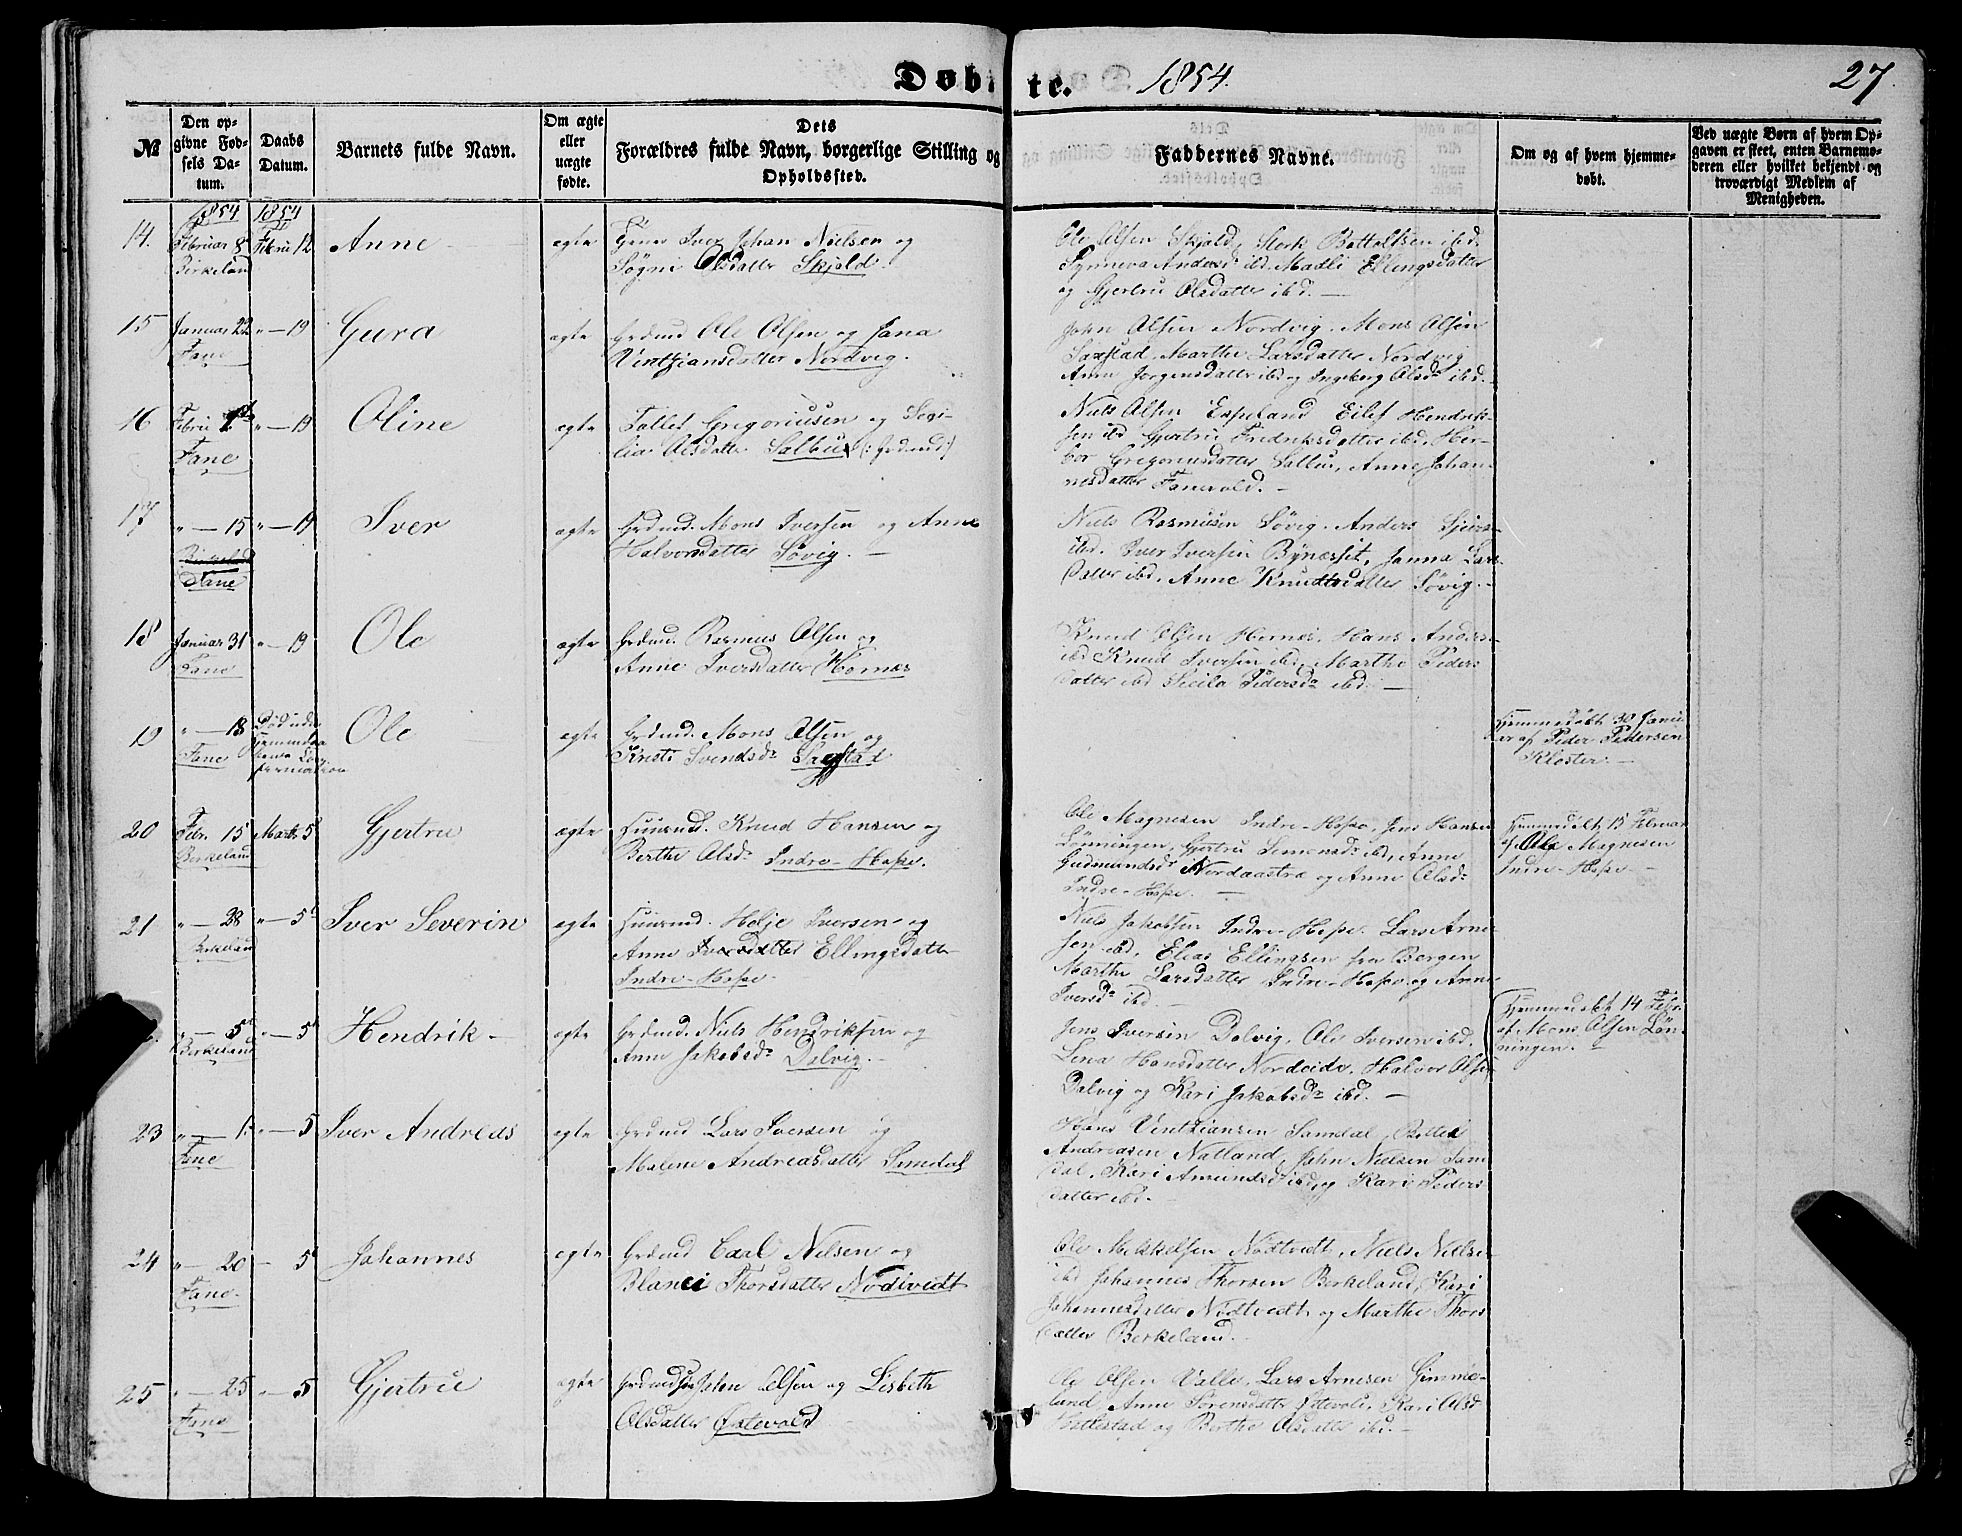 Døbte. 1854. 27.
№ Den opgivne Fødsels Datum. Daabs Datum. Barnets fulde Navn. Om ægte eller uægte fødte. Dets Forældres fulde Navn, borgerlige Stilling og Opholdssted. Faddernes Navne. Om og af hvem hjemmedøbt. Ved uægte Børn af hvem Opgaven er skeet, enten Barnemoderen eller hvilket bekjendt og troværdigt Medlem af Menigheden.
1854 1854
14. Februar 8 Febru 12 Anne ægte Iver Johan Nielsen og
Birkeland Søgni Olsdatter Skjold.
Ole Olsen Skjold, Stork Bottolfsen ibd.
Synneva Andersd. ibd. Madli Ellingsdatter
og Gjertru Olsdatter ibd. —
15 Januar 22 " — 19 Gura ægte Grdmd Ole Olsen og Jana
Fane Ventziansdatter Nordvig.
John Olsen Nordvig. Mons Olsen
Saxstad. Marthe Larsdatter Nordvig
Anne Jørgensdatter ibd og Ingeborg Olsdr ibd.
16 Febru " — 19 Oline ægte Tollef Gregoriusen og Sesi-
Fane lia Olsdatter Salbu (: Grdmd :)
Niels Olsen Espeland Eilef Hendrik-
sen ibd. Gjertru Fredriksdatter ibd, Her-
bor Gregoriusdatter Salbu, Anne Johan-
nesdatter Fanevold. —
17 " — 15 " — 19 Iver ægte Grdmd. Mons Iversen og Anne
Birkeland Halvorsdatter Søvig. —
Fane
Niels Rasmusen Søvig. Anders
ibd. Iver Iversen Bynæsset, Janna Lars-
datter ibd, Anne Knudtsdatter Søvig. —
18 Januar 31 " — 19 Ole ægte Grdmd. Rasmus Olsen og
Fane Anne Iversdatter Hornæs
Knud Olsen Hornæs. Hans Anders-
ibd Knud Iversen ibd, Marthe Peders
datter ibd Sicila Pedersdr ibd. —
19 " — 18 Død uden Ole ægte Grdmd. Mons Olsen og
Fane Kristi Svendsdr Saxstad
Hjemmedøbt 30 Janu-
ar af Peder Pedersen
Kloster. —
20 Febr. 15 Marts 5 Gjertru ægte Huusmd. Knud Hansen og
Berkeland Berthe Olsdr Indre-Hope.
Ole Magnesen Indre-Hope, Jens Hansen
Lønningen, Gjertru Simonsdr ibd, Anne
Gudmundsdr Nordaastræ og Anne Olsdr
Indre-Hope. —
Hjemmedøbt 15 Februar
af Ole Magnesen
Indre-Hope —
21 " — 28 " — 5 Iver Severin ægte Huusmd. Helje Iversen og
Berkeland Anne Iversdatter Ellingsdatter
Indre-Hope
Niels Jakobsen Indre-Hope. Lars Arne-
sen ibd, Elias Ellingsen fra Bergen
Marthe Larsdatter Indre-Hope og Anne
Iversdr ibd. —
" — 5 " — 5 Hendrik — ægte Grdmd. Niels Hendriksen og
Berkeland Anne Jakobsdr Dalvig. —
Jens Iversen Dalvig, Ole Iversen ibd.
Lena Hansdatter Nordeide. Halvor Olsen
Dalvig og Kari Jakobsdr ibd. —
Hjemmedøbt 14 Febr.
af Mons Olsen Løn-
ningen. —
23 " — 1 " — 5 Iver Andreas ægte Grdmd Lars Iversen og
Fane Malene Andreasdatter Smedal
Hans Ventziansen Samdal, Botted
Andreasen Natland, John Nielsen Sam-
dal, Kari Amundsd ibd, og Kari Peders-
datter ibd. —
24 " — 20 — 5 Johannes ægte Grdmd Carl Nelsen og
Fane Blanci Thorsdatter Nødtvedt
Ole Mikkelsen Nødtvedt, Niels Nielsen
ibd Johannes Thorsen Berkeland, Kari
Johannesdatter Nødtvedt og Marthe Thors-
datter Berkeland. —
25 " — 25 " — 5 Gjertru ægte John Olsen og Lisbeth
Fane Olsdatter Østevold
Ole Olsen Valle, Lars Arnesen Himme-
land Anne Sørensdatter Kari Olsd
og Berthe Olsdatter ibd. —